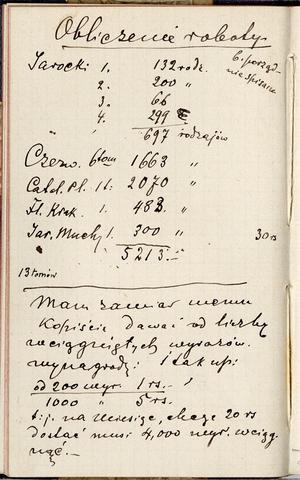 Obliczenie roboty
Jarocki 1. 132 rodz. b. porząd-
2. 200 " nie spisane
3. 66
4. 299
" " 697 rodzajów
Czerw. 6 tom 1663 "
Catal. Pl. 1 t: 2070 "
Fl. Krak. 1. 483. "
Jar. Muchy 1. 300 " 30 rs
5213.—
13 tomów
Mam zamiar memu
Kopiście dawać od liczby
wciągniętych wyrazów.
wynagrodz: i tak np:
od 200 wyr. 1 rs.—
1000 " 5 rs.—
t:j. na miesiąc, chcąc 20 rs
dostać musi 4,000 wyr. wciąg-
nąć.—